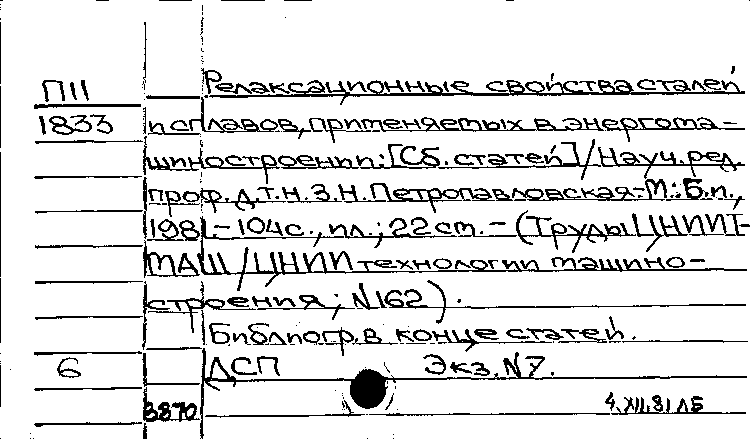 П11 Релаксационные свойства сталей
1833 и сплавов, применяемых в энергома-
шиностроении: [Сб. статей] / Науч. ред.
проф. д.т.н. З.Н. Петропавловская.-М.: Б.и.,
1981.-104с., ил.; 22 см. - (Труды ЦНИИТ-
МАШ / ЦНИИ технологии машино-
строения; N162).
Библиогр. в конце статей.
6 ДСП Экз. N7.
3870 4.XII.81 ЛБ